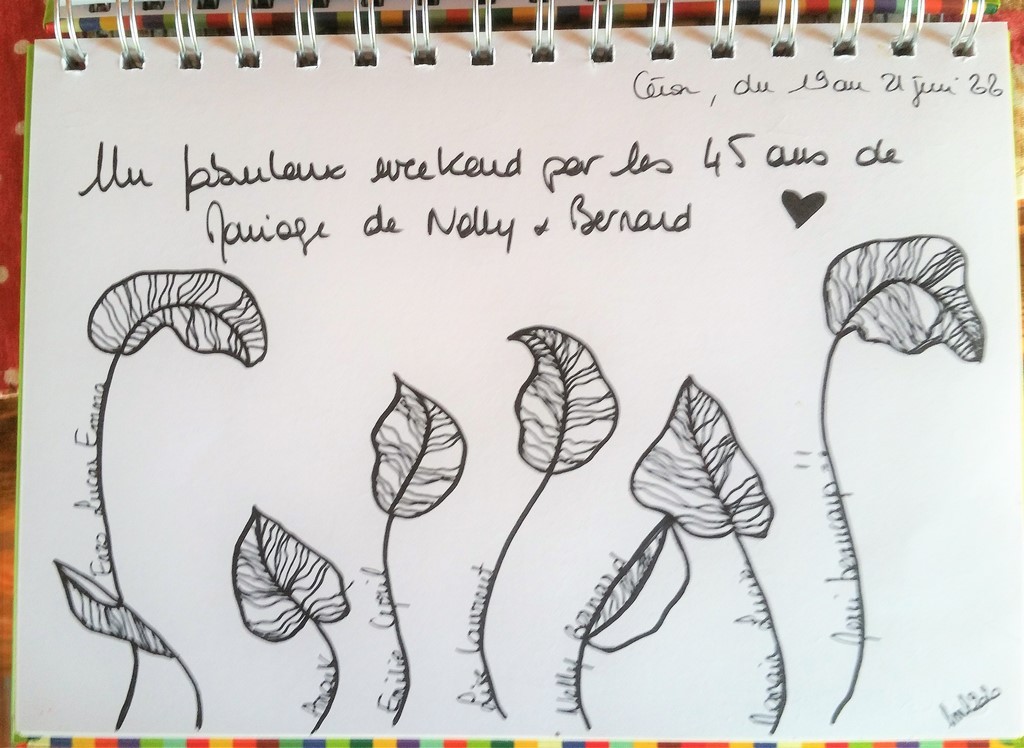 du 19 au 21 juin 22
Un fabuleux weekend par les 45 ans de
Mariage de Nelly & Bernard
Enzo Lucas Emma
Anouk
Emilie Cyril
Lise Laurent
Nelly Bernard
Romain Lucie
Merci beaucoup !!